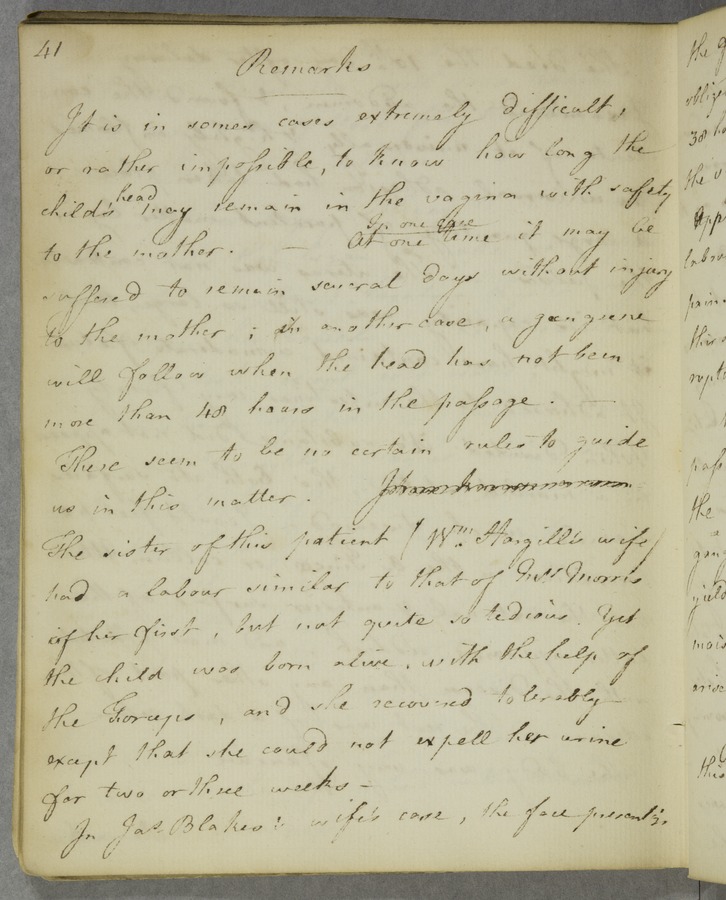 41
Remarks
It is in somes cases extremely difficult,
or rather impossible, to know how long the
child's head may remain in the vagina with safety
to the mother. — In one case
At one time it may be
suffered to remain several days without injury
to the mother; in another case, a gangrene
will follow when the head has not been
more than 48 hours in the passage. —
There seem to be no certain rules to guide
us in this matter.
The sister of this patient (Wm. Hargill's wife)
had a labour similar to that of Mrs Morris
of her first, but not quite so tedious. Yet
the child was born alive, with the help of
the Forceps, and she recovered tolerably
except that she could not expell her urine
for two or three weeks —
In Jas Blakes's wife's case, the face presentg.
the
38
the
this
the
this